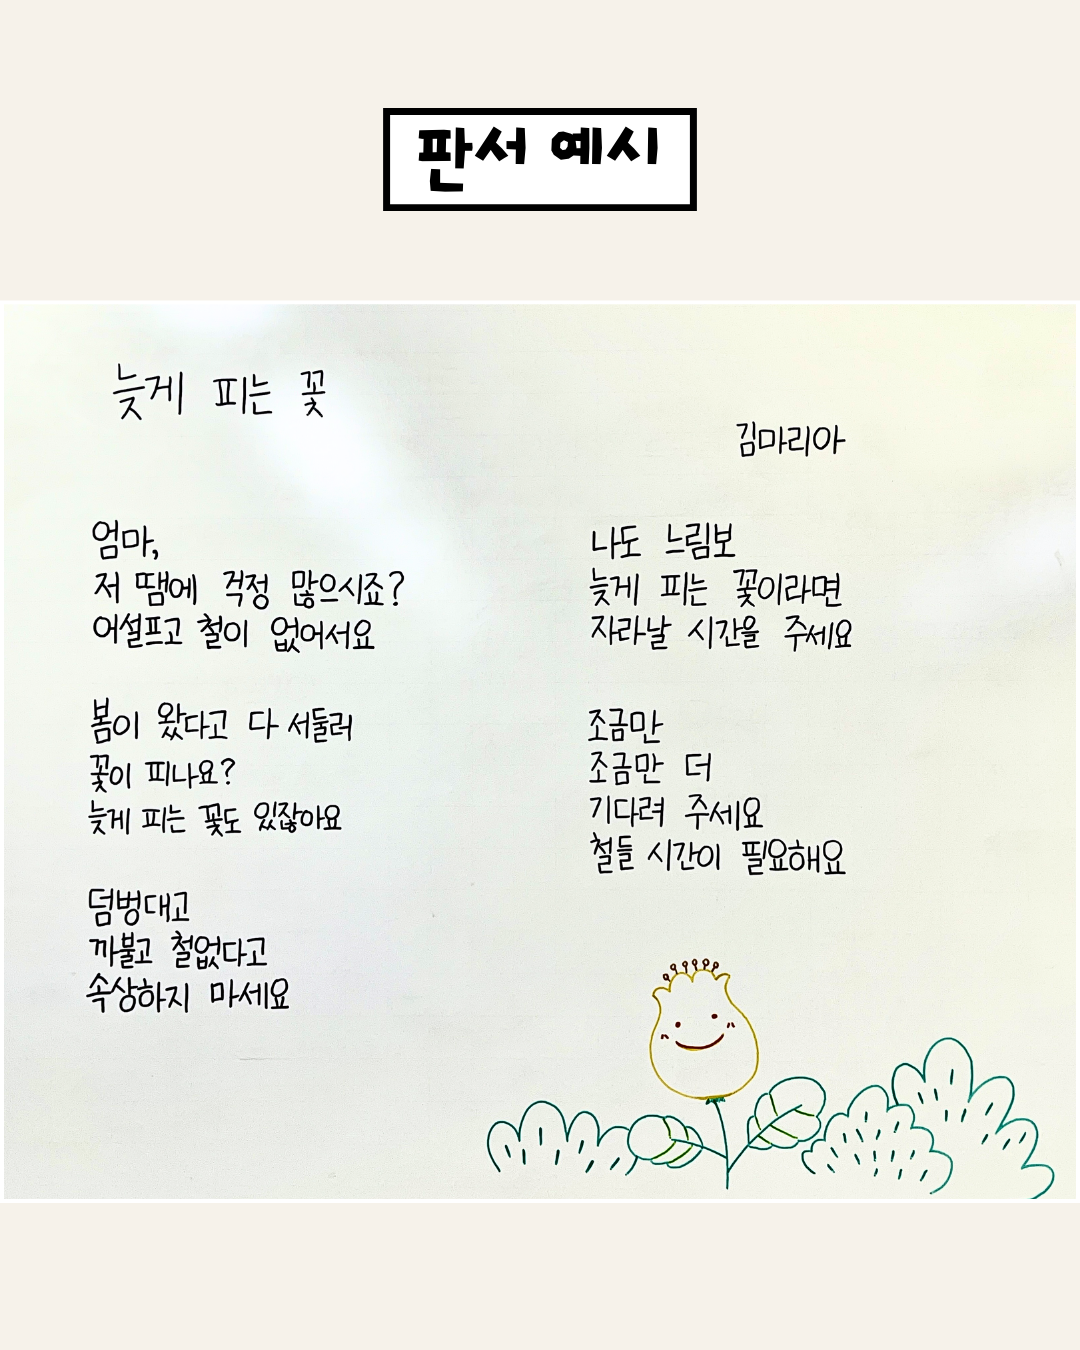 판서 예시
늦게 피는 꽃
김마리아
엄마,
저 땜에 걱정 많으시죠?
어설프고 철이 없어서요
봄이 왔다고 다 서둘러
꽃이 피나요?
늦게 피는 꽃도 있잖아요
덤벙대고
까불고 철없다고
속상하지 마세요
나도 느림보
늦게 피는 꽃이라면
자라날 시간을 주세요
조금만
조금만 더
기다려 주세요
철들 시간이 필요해요